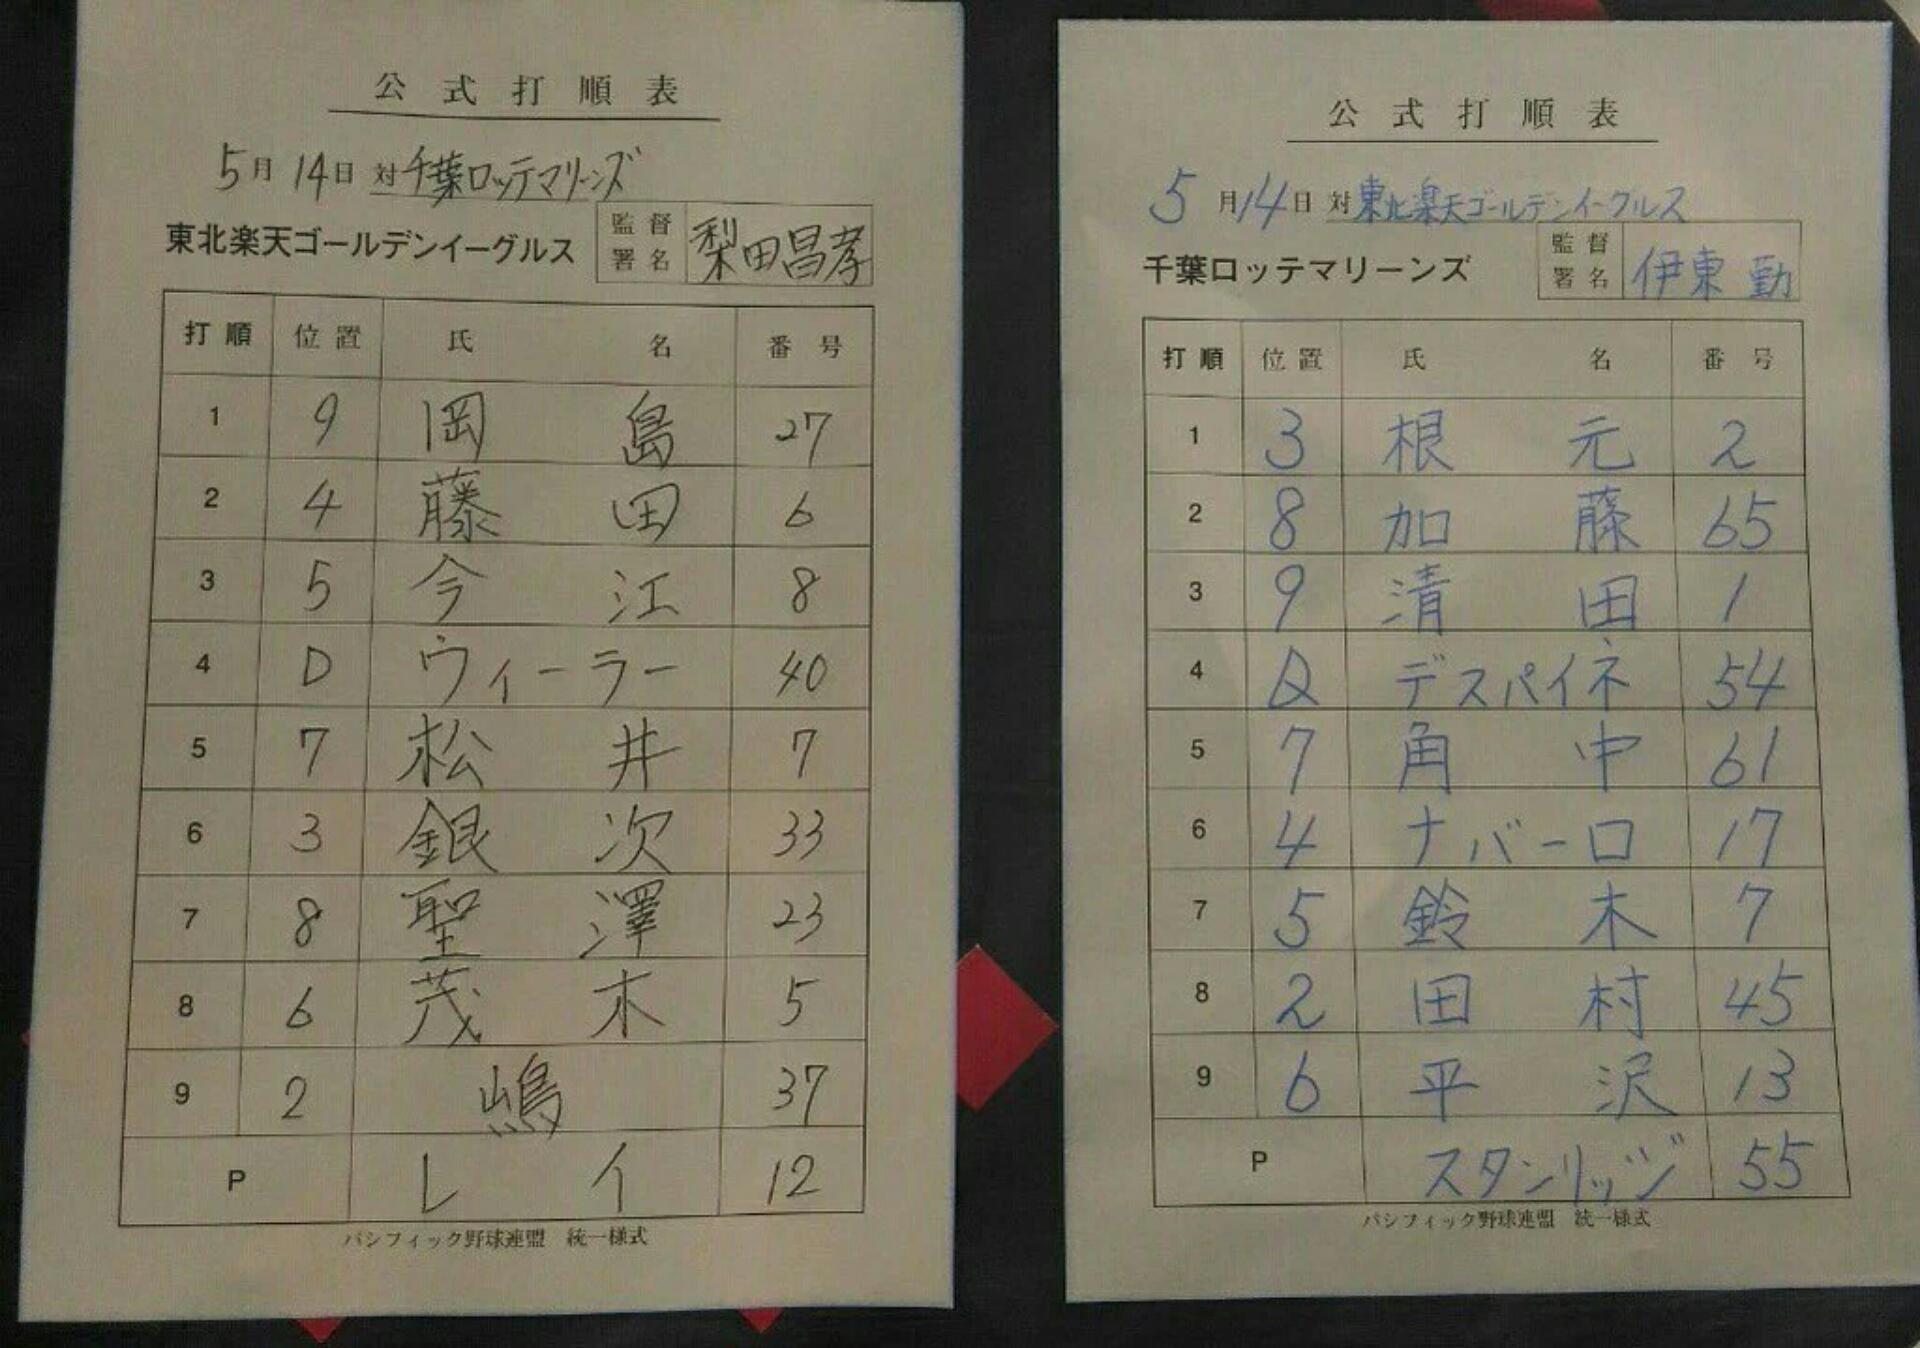 公式打順表
5月14日 対千葉ロッテマリーンズ
東北楽天ゴールデンイーグルス 監督署名 梨田昌孝
打順 位置 氏名 番号
1 9 岡島 27
2 4 藤田 6
3 5 今江 8
4 D ウィーラー 40
5 7 松井 7
6 3 銀次 33
7 8 聖澤 23
8 6 茂木 5
9 2 嶋 37
P レイ 12
パシフィック野球連盟 統一様式
公式打順表
5月14日 対東北楽天ゴールデンイーグルス
千葉ロッテマリーンズ 監督署名 伊東勤
打順 位置 氏名 番号
1 3 根元 2
2 8 加藤 65
3 9 清田 1
4 D デスパイネ 54
5 7 角中 61
6 4 ナバーロ 17
7 5 鈴木 7
8 2 田村 45
9 6 平沢 13
P スタンリッジ 55
パシフィック野球連盟 統一様式